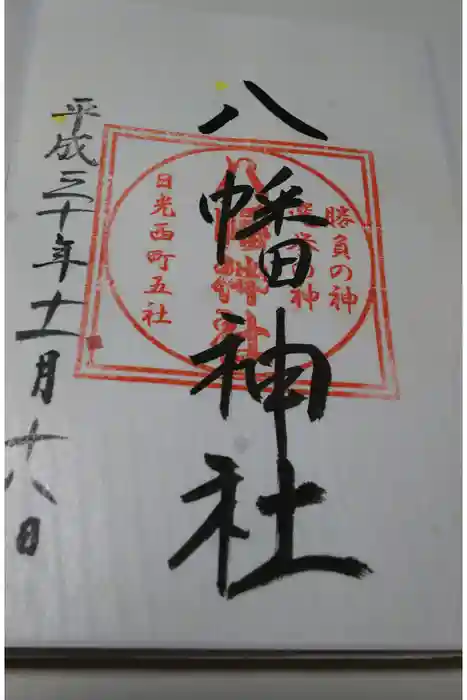 勝負の神
選挙の神
八幡神社
日光西町五社
平成三十年十一月十八日